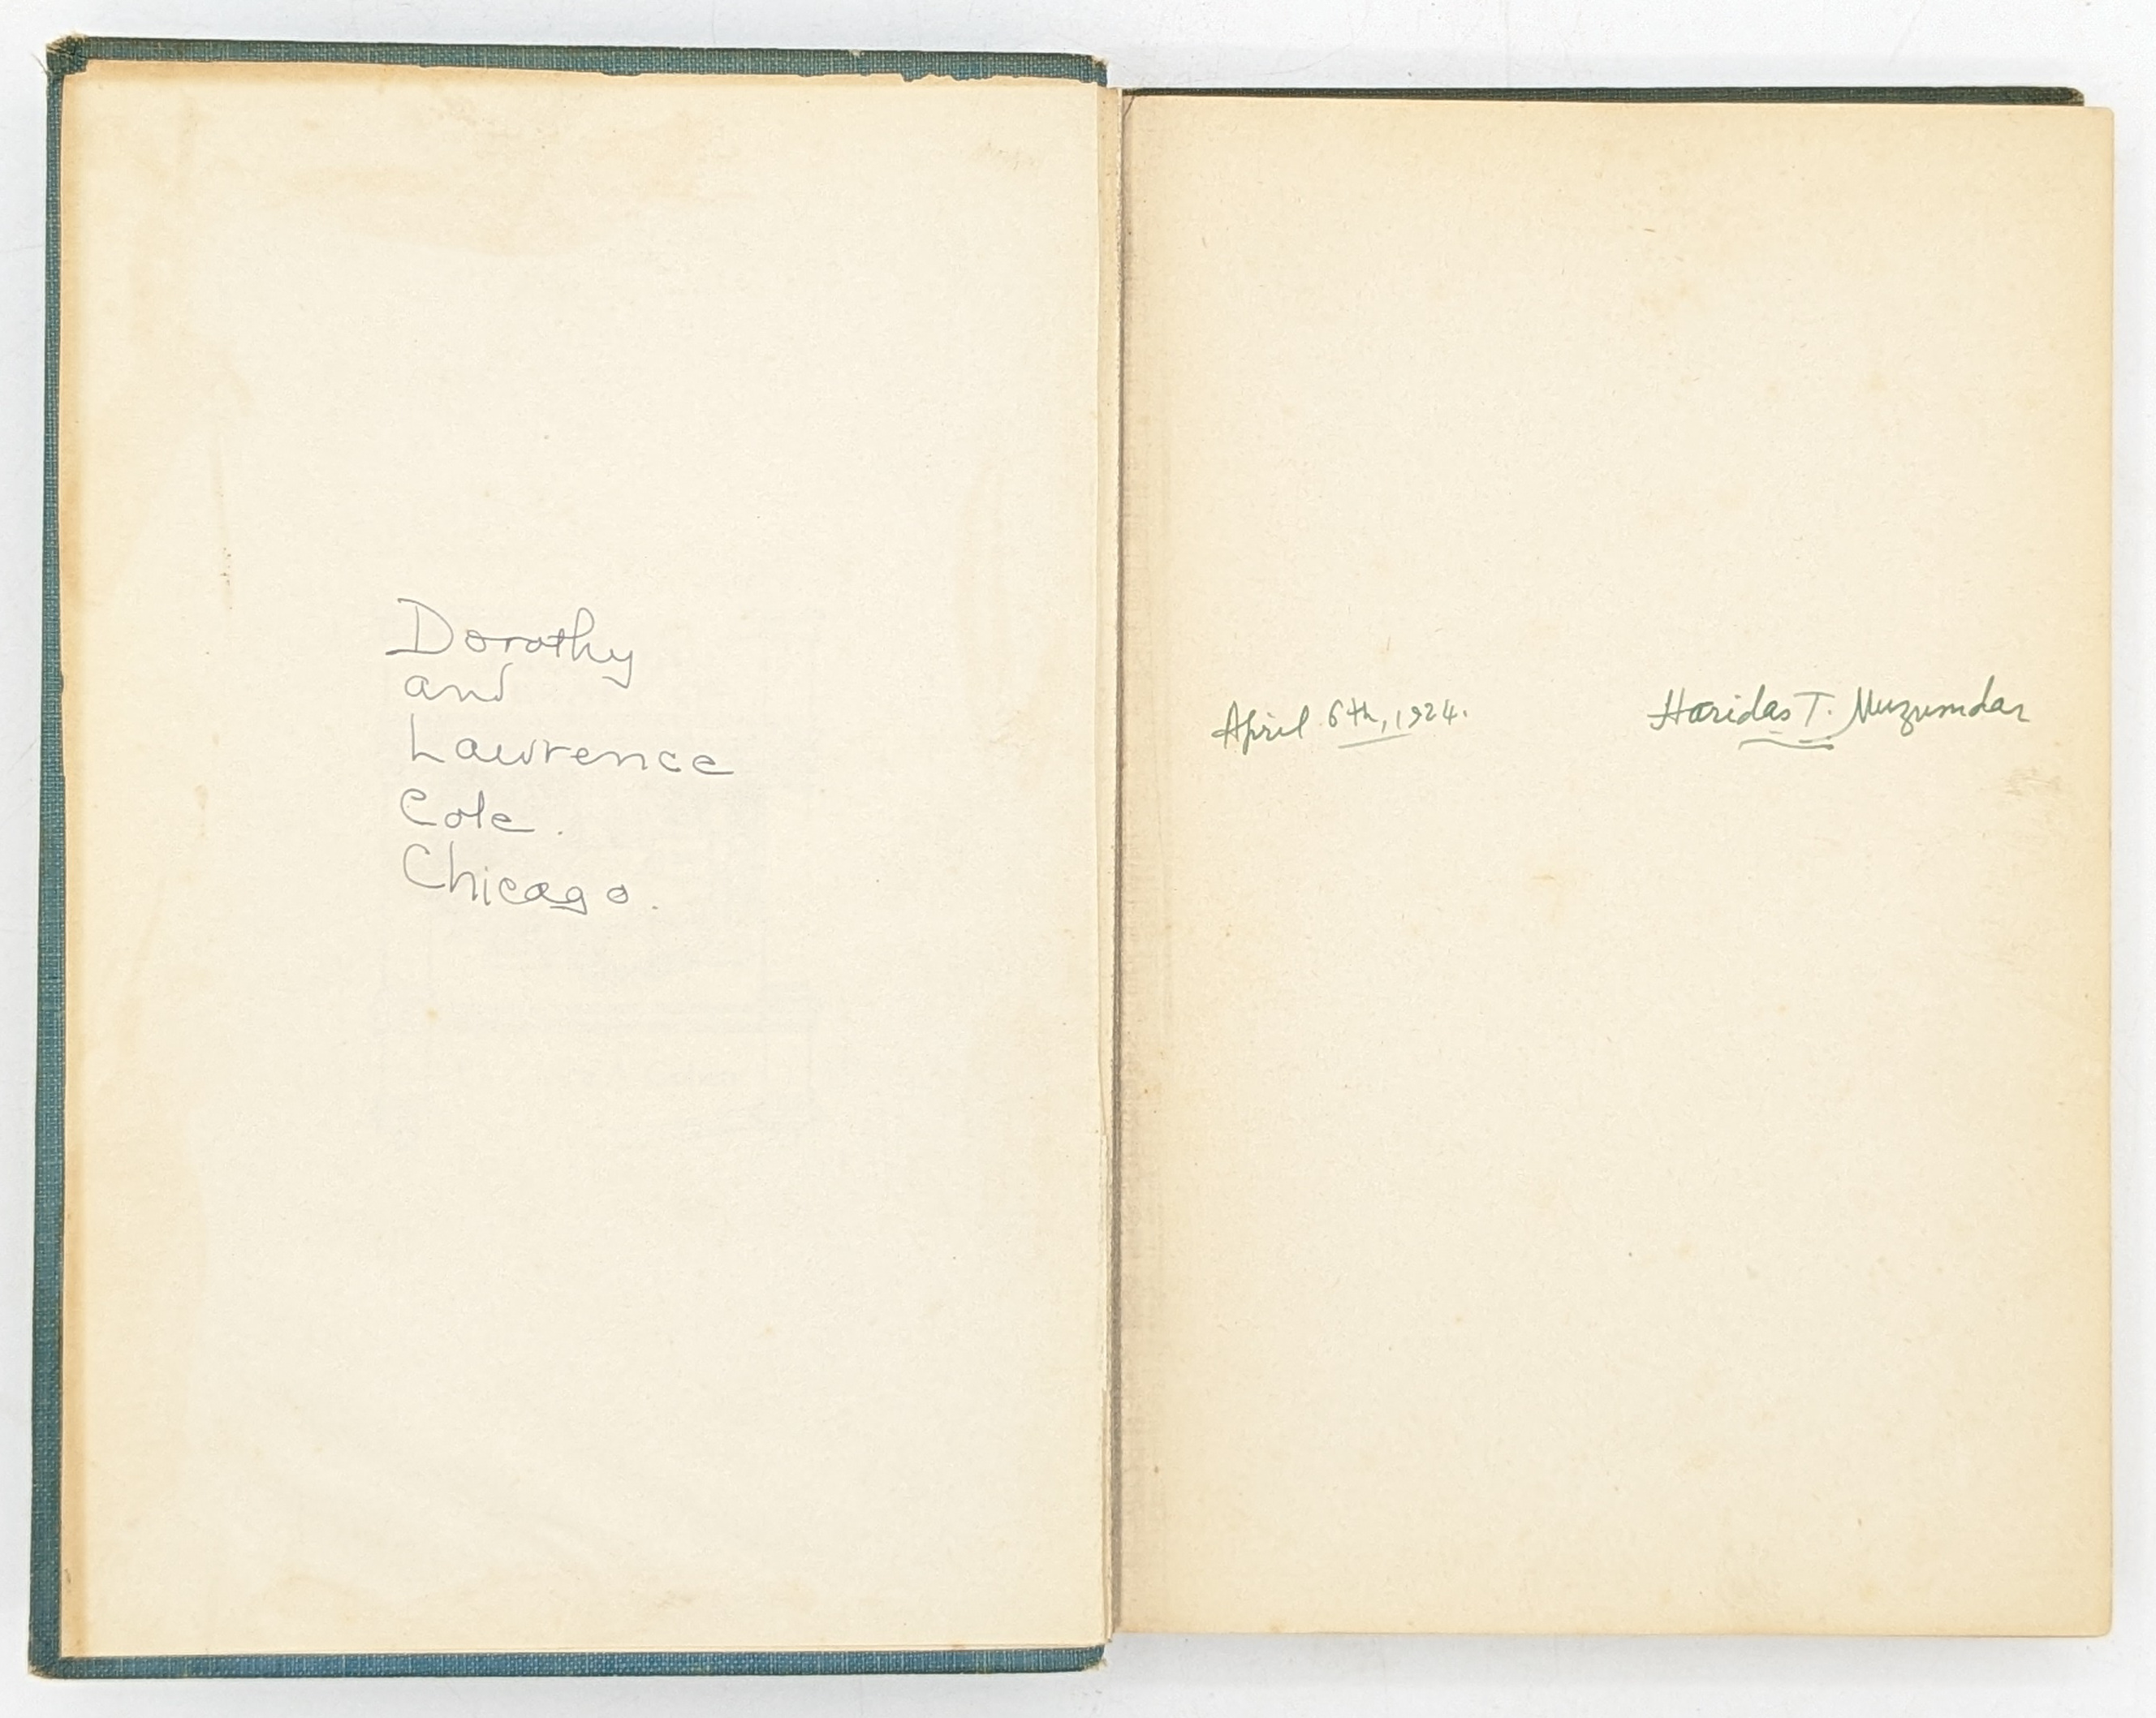 Dorothy
and
Lawrence
Cole.
Chicago.
April 6th, 1924.
Haridas T. Muzumdar